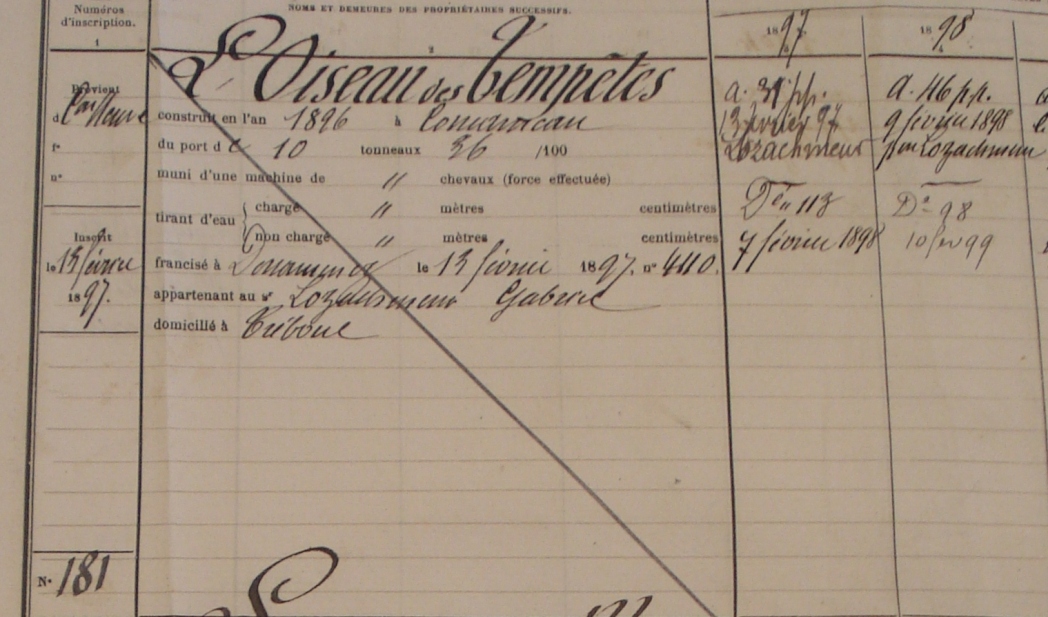 Numéros
d'inscription.
1
NOMS ET DEMEURES DES PROPRIÉTAIRES SUCCESSIFS.
2
1897
1898
4
L'Oiseau des Tempêtes
Provient
d
f°
n°
construit en l'an 1896 à Concarneau
du port de 10 tonneaux 36 /100
muni d'une machine de " chevaux (force effectuée)
tirant d'eau
chargé " mètres centimètres
non chargé " mètres centimètres
Inscrit
le 13 février
1897.
francisé à Douarnenez le 13 février 1897. n° 440.
appartenant au sr Lozachmeur Gabriel
domicilié à Tréboul
a. 39 pp.
13 février 97
Lozachmeur
Don 113
7 février 1898
a. 46 p.p.
9 février 1898
par Lozachmeur
Do 98
10 fev 99
N° 181